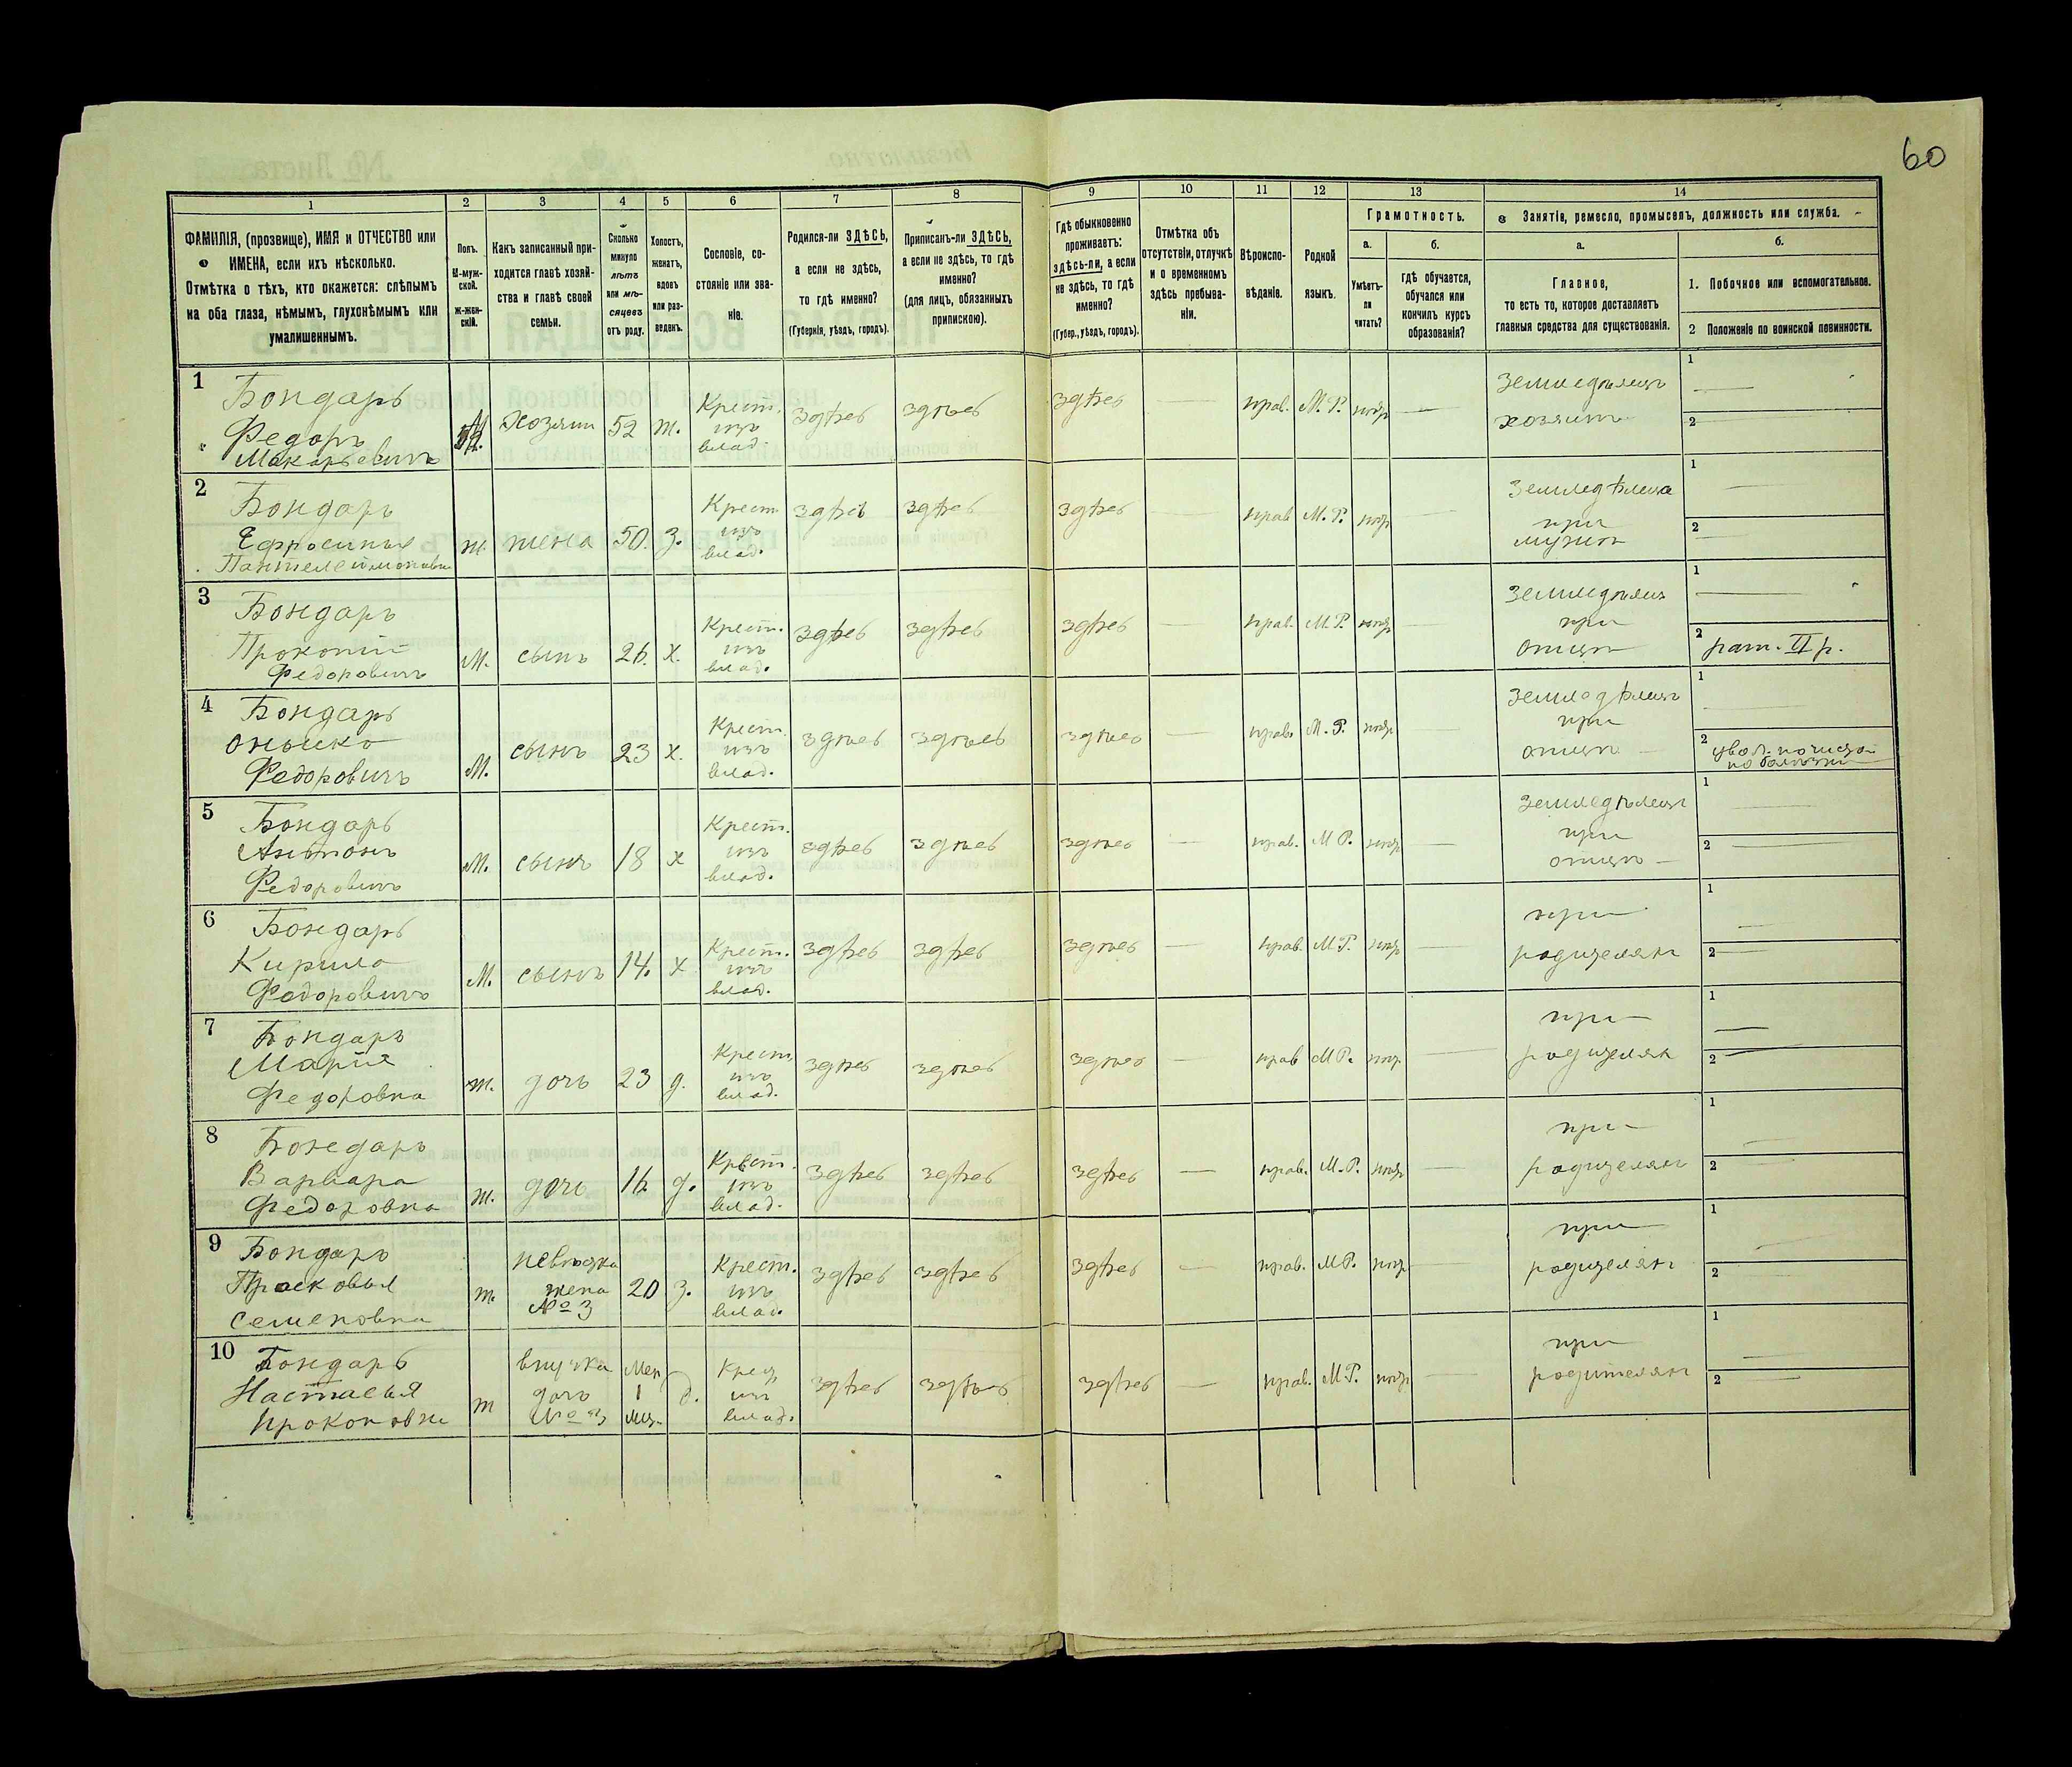 60
1 2 3 4 5 6 7 8 9 10 11 12 13 14
ФАМИЛІЯ, (прозвище), ИМЯ и ОТЧЕСТВО или
ИМЕНА, если ихъ нѣсколько.
Отмѣтка о тѣхъ, кто окажется: слѣпымъ
на оба глаза, нѣмымъ, глухонѣмымъ или
умалишеннымъ.
Полъ.
М-муж-
ской.
Ж-жен-
скій.
Какъ записанный при-
ходится главѣ хозяй-
ства и главѣ своей
семьи.
Сколько
минуло
лѣтъ
или мѣ-
сяцевъ
отъ роду.
Холостъ,
женатъ,
вдовъ
или раз-
веденъ.
Сословіе, со-
стояніе или зва-
ніе.
Родился-ли ЗДѢСЬ,
а если не здѣсь,
то гдѣ именно?
(Губернія, уѣздъ, городъ).
Приписанъ-ли ЗДѢСЬ,
а если не здѣсь, то гдѣ
именно?
(для лицъ, обязанныхъ
припискою).
Гдѣ обыкновенно
проживаетъ:
здѣсь-ли, а если
не здѣсь, то гдѣ
именно?
(Губер., уѣздъ, городъ).
Отмѣтка объ
отсутствіи, отлучкѣ
и о временномъ
здѣсь пребыва-
ніи.
Вѣроиспо-
вѣданіе.
Родной
языкъ.
Грамотность.
а.
Умѣетъ-
ли
читать?
б.
гдѣ обучается,
обучался или
кончилъ курсъ
образованія?
Занятіе, ремесло, промыселъ, должность или служба.
а.
Главное,
то есть то, которое доставляетъ
главныя средства для существованія.
б.
1. Побочное или вспомогательное.
2 Положеніе по воинской повинности.
1 Бондарь
Федоръ
Макарьевичъ
хозяин 52 ж.
Крест.
изъ
влад.
здѣсь здѣсь здѣсь — прав. М.Р. —
земледѣлецъ
хозяинъ
1 —
2 —
2 Бондарь
Ефросинья
ж. жена 50. з.
Крест
изъ
влад.
здѣсь здѣсь здѣсь — прав М.Р. —
Земледѣлица
при
мужѣ
1 —
2 —
3 Бондарь
Прокопій
Федоровичъ
М. сынъ 26. х.
Крест.
изъ
влад.
здѣсь здѣсь здѣсь — прав. М.Р. —
земледѣлец
при
отцѣ
1 —
2 рат. II р.
4 Бондарь
Федоровичъ
М. сынъ 23 х.
Крест.
изъ
влад.
здѣсь здѣсь здѣсь — прав. М.Р. —
земледѣлецъ
при
отцѣ —
1 —
2
5 Бондарь
Антонъ
Федоровичъ
М. сынъ 18 х
Крест.
изъ
влад.
здѣсь здѣсь здѣсь — прав. М Р. —
земледѣлецъ
при
отцѣ —
1 —
2 —
6 Бондарь
Кирило
Федоровичъ
М. сынъ 14. х
Крест.
изъ
влад.
здѣсь здѣсь здѣсь — прав. М.Р. —
при
родителяхъ
1 —
2 —
7 Бондарь
Марія
Федоровна
ж. дочь 23 д.
Крест.
изъ
влад.
здѣсь здѣсь здѣсь — прав М Р. —
при
родителях
1 —
2 —
8 Бондарь
Варвара
Федоровна
ж. дочь 16 д.
Крест.
изъ
влад.
здѣсь здѣсь здѣсь — прав. М.Р. —
при
родителях
1 —
2 —
9 Бондарь
Прасковья
Семеновна
ж. невѣстка
жена
№ 3
20 з.
Крест.
изъ
влад.
здѣсь здѣсь здѣсь — прав. М.Р.
при
родителях
1 —
2 —
10 Бондарь
Настасья
Прокоповна
ж внучка
дочь
№ 3
1
д.
Крес
изъ
влад.
здѣсь здѣсь здѣсь — прав. М.Р. —
при
родителях
1 —
2 —